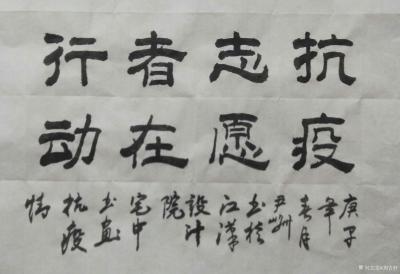 抗疫
志愿
者在
行动
庚子
年
春月
尹
书于
江汉
设计
院
宅中
书画
抗疫
情